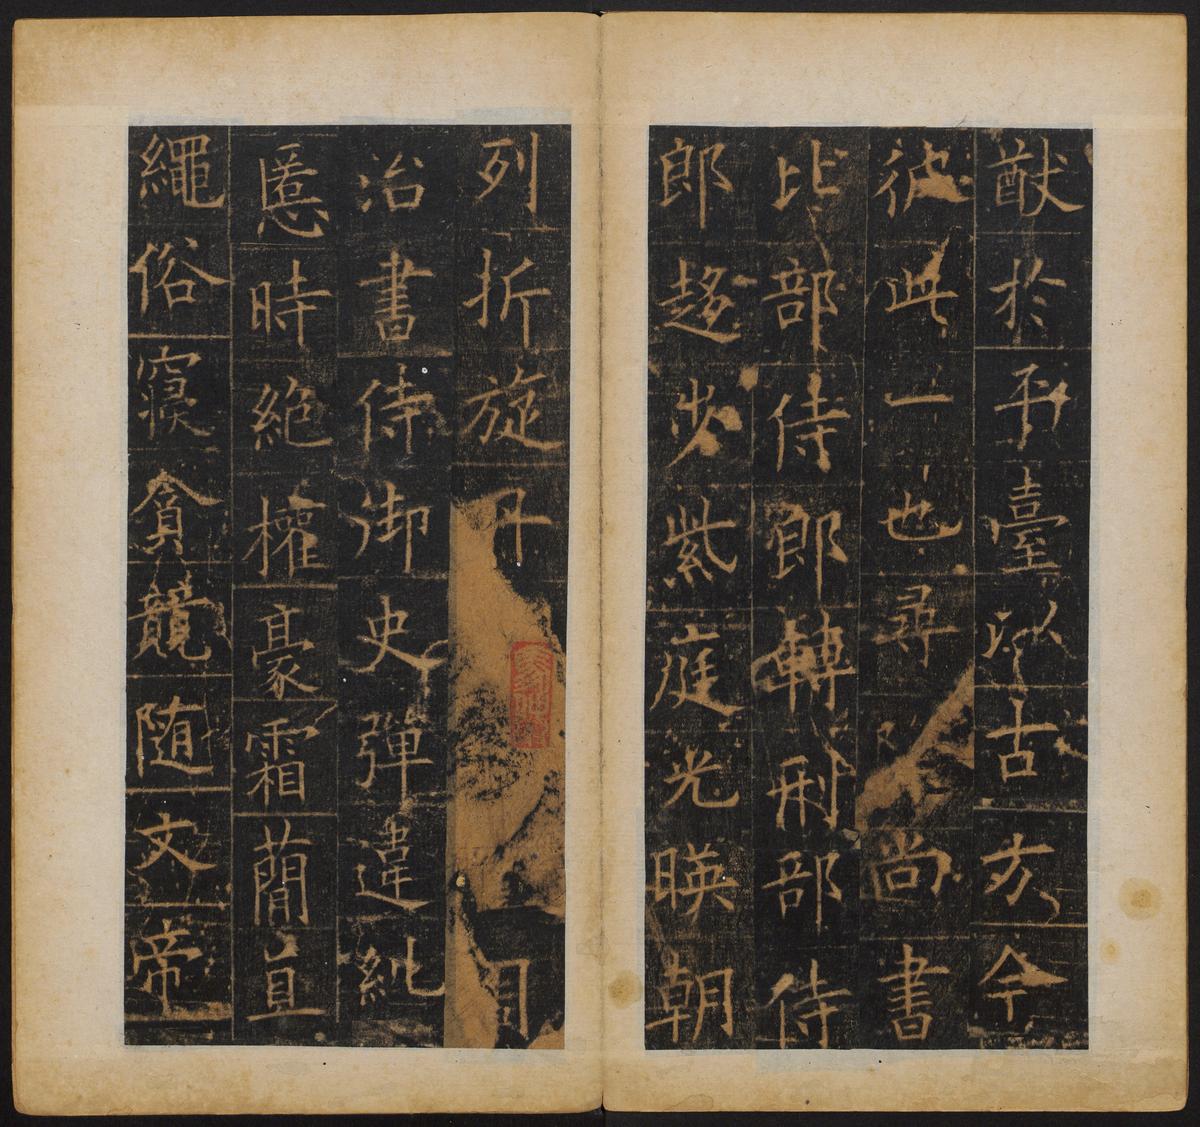 猷於平臺以古方今
彼此一也尋尚書
比部侍郎轉刑部侍
郎趍步紫庭光暎朝
列折旋丹目
治書侍御史彈違糺
慝時絕權豪霜蕳直
繩俗寢貪競随文帝